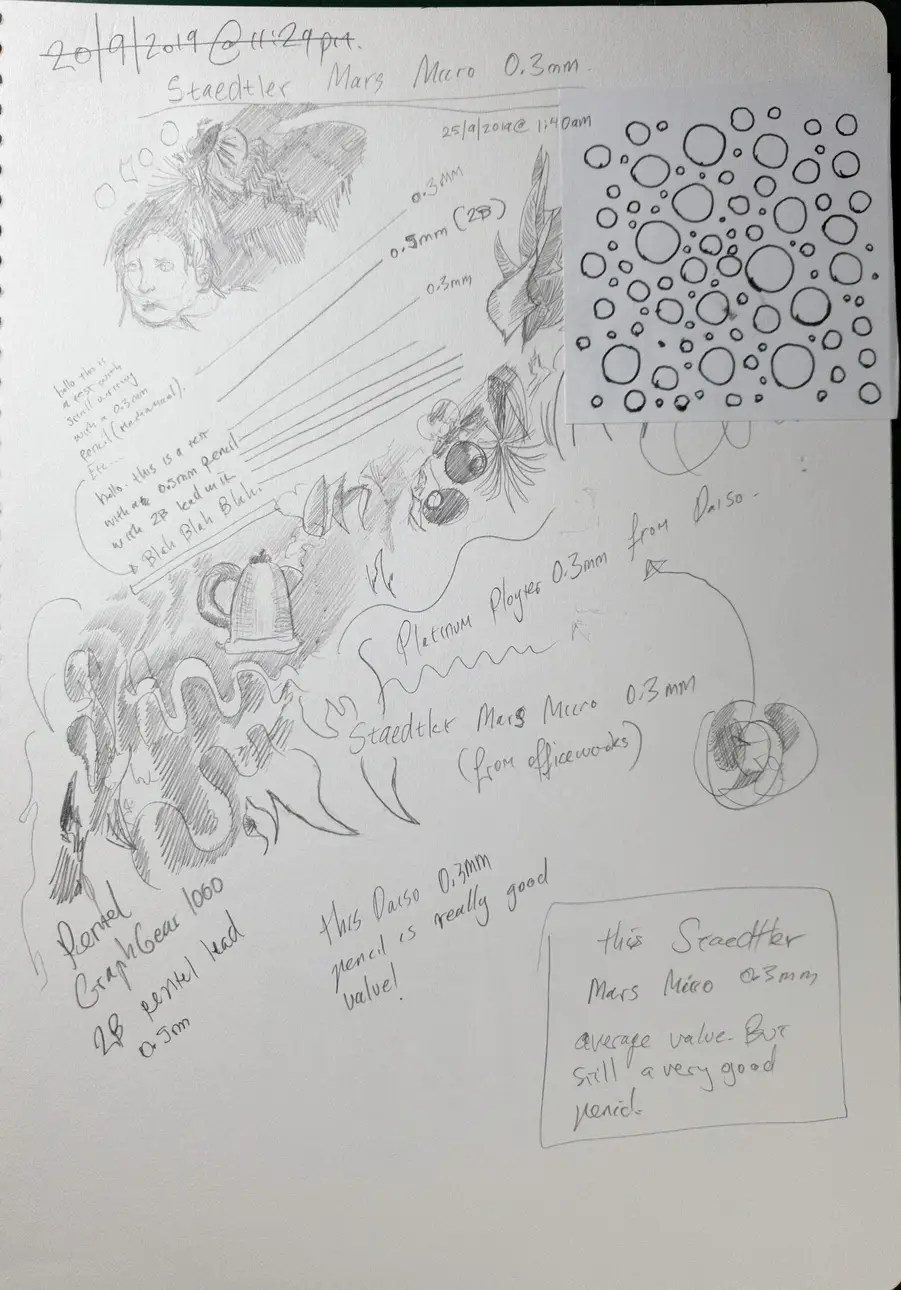 20/9/2019 @ 11:29pm.
Staedtler Mars Micro 0.3mm.
25/9/2019 @ 1:40am
0.3mm
0.5mm (2B)
0.3mm
hello this is
a test with
small writing
with a 0.3mm
pencil (mechanical).
Etc...
hello. this is a test
with a 0.5mm pencil
with 2B lead in it
Blah Blah Blah.
Platinum Ployter 0.3mm from Daiso.
Staedtler Mars Micro 0.3mm
(from officeworks)
Pentel
GraphGear 1000
2B pentel lead
0.5mm
this Daiso 0.3mm
pencil is really good
value!
this Staedtler
Mars Micro 0.3mm
average value. But
still a very good
pencil.